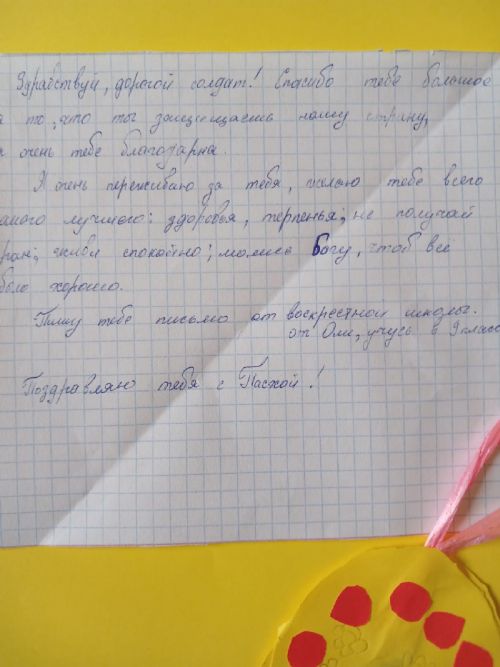 Здравствуй, дорогой солдат! Спасибо тебе большое
а то, что ты защищаешь нашу страну,
я очень тебе благодарна.
Я очень переживаю за тебя, желаю тебе всего
амого лучшего: здоровья, терпенья; не получай
ран; живи спокойно; молись Богу, чтоб всё
было хорошо.
Пишу тебе письмо от воскрестной школы.
от Оли, учусь в 9 класс
Поздравляю тебя с Пасхой!